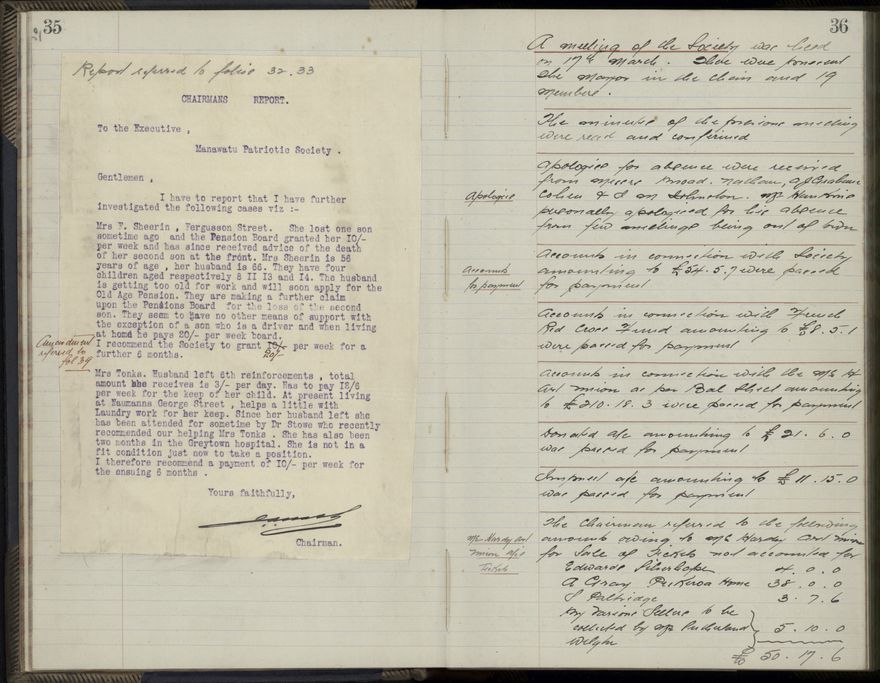 35
Report referred to folio 32.33
CHAIRMANS REPORT.
To the Executive ,
Manawatu Patriotic Society .
Gentlemen ,
I have to report that I have further
investigated the following cases viz :-
Mrs F. Sheerin , Fergusson Street. She lost one son
sometime ago and the Pension Board granted her IO/-
per week and has since received advice of the death
of her second son at the front. Mrs Sheerin is 56
years of age , her husband is 66. They have four
children aged respectively 8 II I3 and I4. The husband
is getting too old for work and will soon apply for the
Old Age Pension. They are making a further claim
upon the Pensions Board for the loss of the second
son. They seem to have no other means of support with
the exception of a son who is a driver and when living
at home he pays 20/- per week board.
I recommend the Society to grant IO/- per week for a
20/-
further 6 months.
Amendment
referred to
fol 39
Mrs Tonks. Husband left 6th reinforcements , total
amount she receives is 3/- per day. Has to pay I2/6
per week for the keep of her child. At present living
at Naumanns George Street , helps a little with
Laundry work for her keep. Since her husband left she
has been attended for sometime by Dr Stowe who recently
recommended our helping Mrs Tonks . She has also been
two months in the Greytown hospital. She is not in a
fit condition just now to take a position.
I therefore recommend a payment of IO/- per week for
the ensuing 6 months .
Yours faithfully,
Chairman.
36
A meeting of the Society was held
on 17th March. There were present
the Mayor in the chair and 19
members.
The minutes of the previous meeting
were read and confirmed
Apologies
Apologies for absence were received
from Messrs Broad. Nathan, Graham
Cohen & Johnston. Mr Hankins
personally apologised for his absence
from few meetings being out of town
Accounts
for payment
Accounts in connection with Society
amounting to £54.5.7 were passed
for payment
Accounts in connection with French
Red Cross Fund amounting to £8.5.1
were passed for payment
Accounts in connection with the Mrs H
Art Union as per Bal Sheet amounting
to £210.18.3 were passed for payment
Donated a/c amounting to £21.6.0
was passed for payment
a/c amounting to £11.15.0
was passed for payment
Mrs Hardy Art
Union a/c
Tickets
The Chairman referred to the following
amounts owing to Mrs Hardy Art Union
for Sale of Tickets not accounted for
Edwards 4.0.0
A Gray Home 38.0.0
S Partridge 3.7.6
By Various Sellers to be
collected by Mr Sutherland 5.10.0
£50.17.6